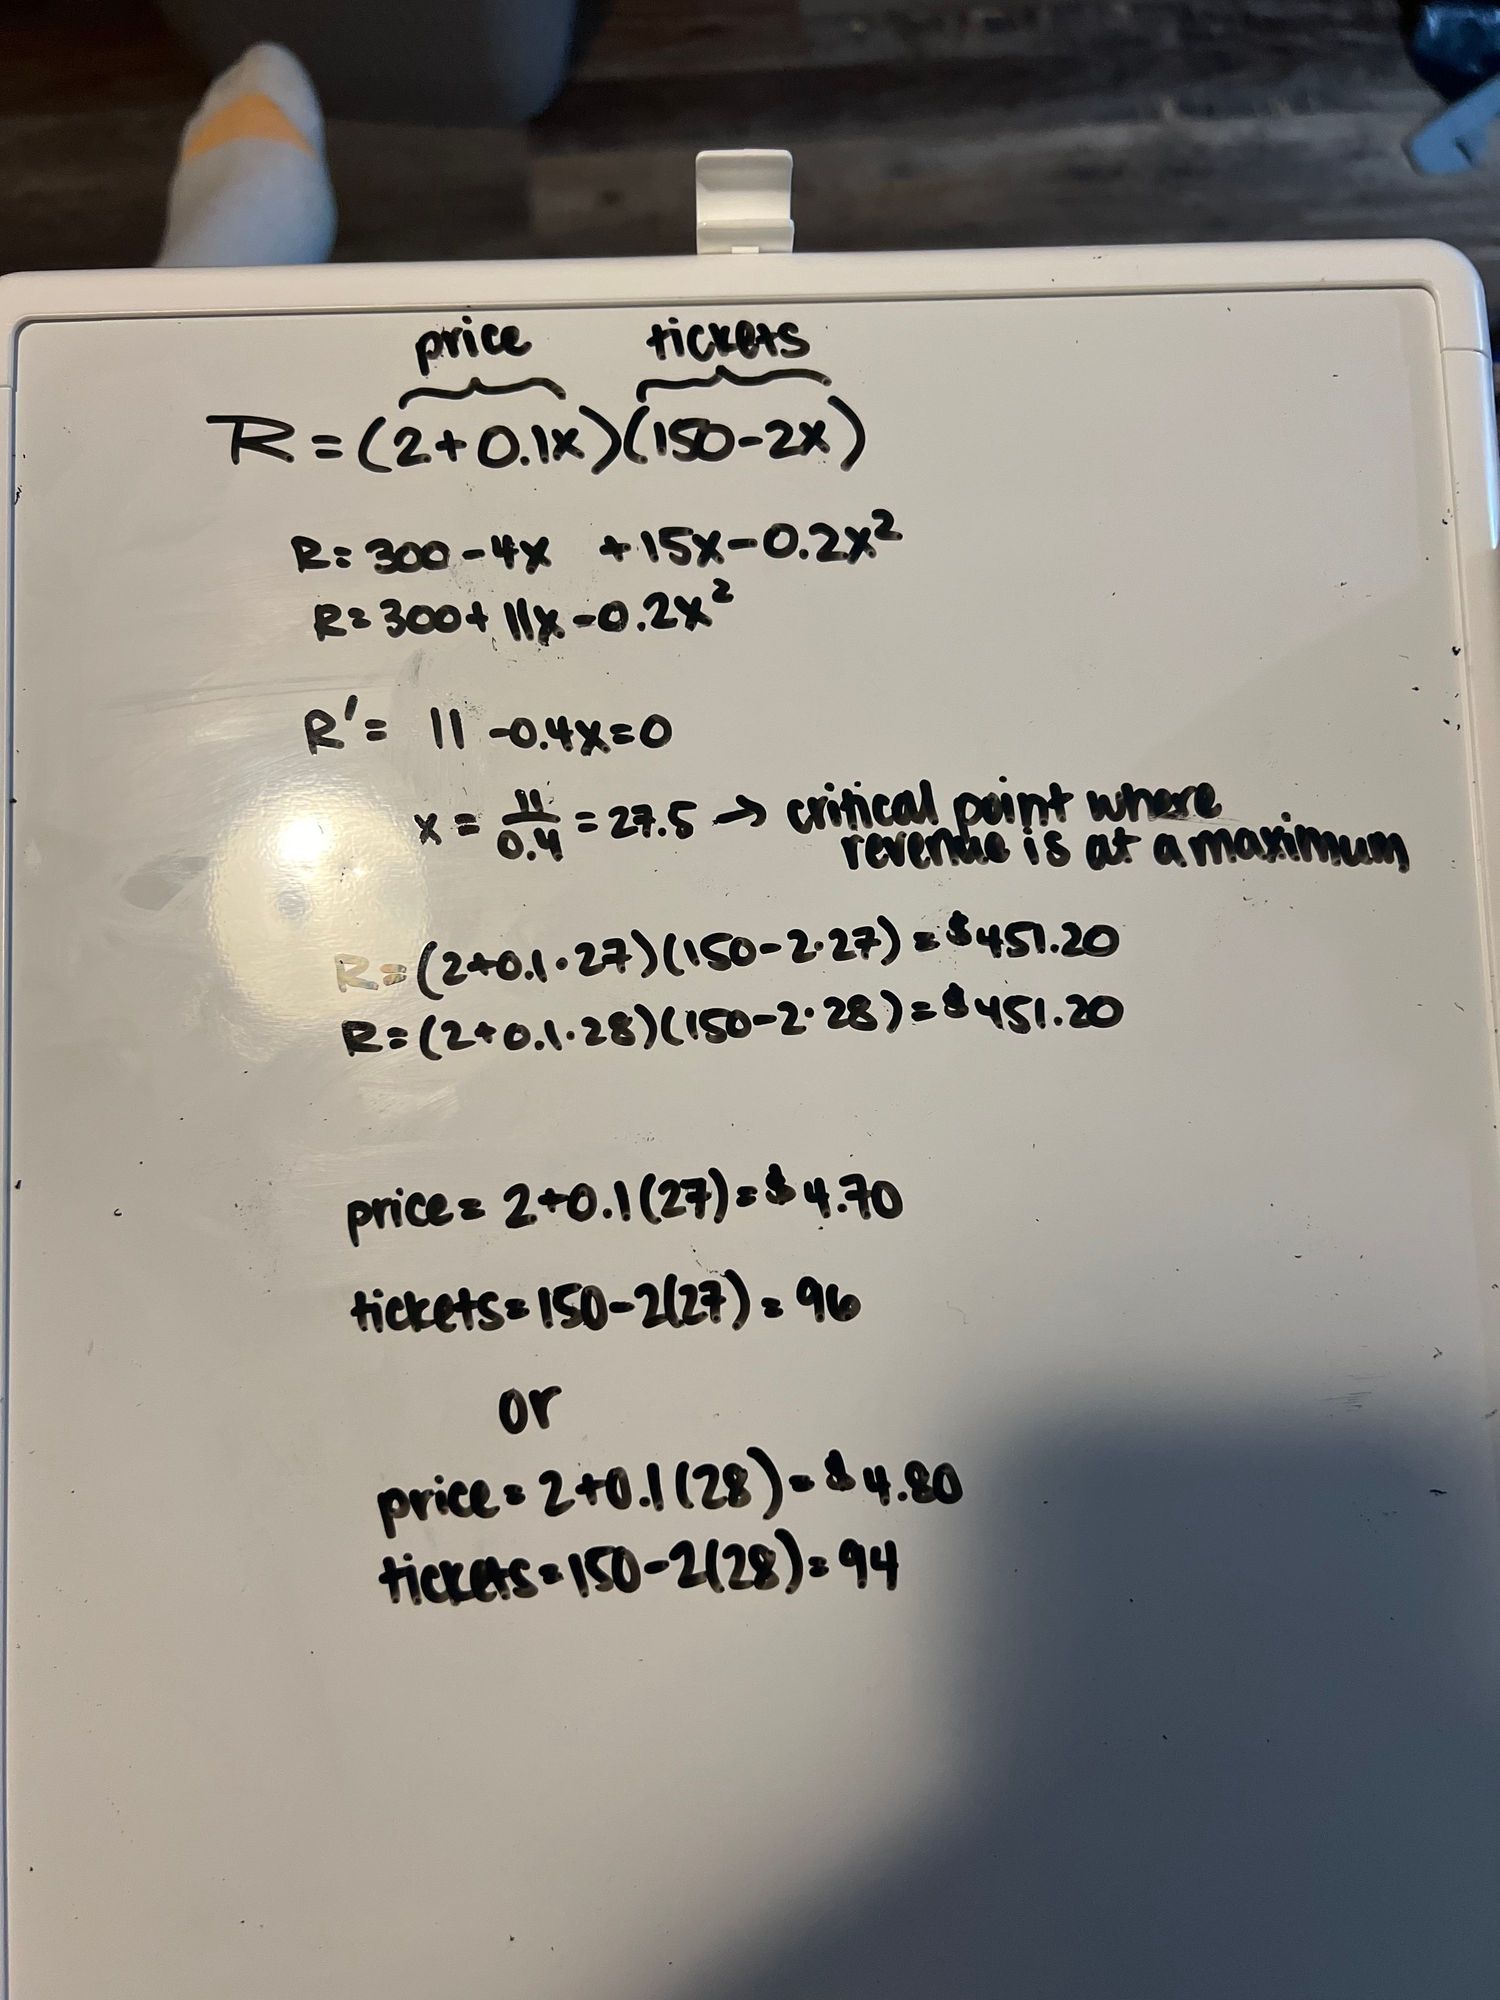 price tickets
R=(2+0.1x)(150-2x)
R=300-4x +15x-0.2x²
R=300+11x-0.2x²
R'= 11-0.4x=0
x = 11/0.4 = 27.5 → critical point where
revenue is at a maximum
R=(2+0.1·27)(150-2·27)=$451.20
R=(2+0.1·28)(150-2·28)=$451.20
price= 2+0.1(27)=$4.70
tickets=150-2(27)=96
or
price=2+0.1(28)=$4.80
tickets=150-2(28)=94